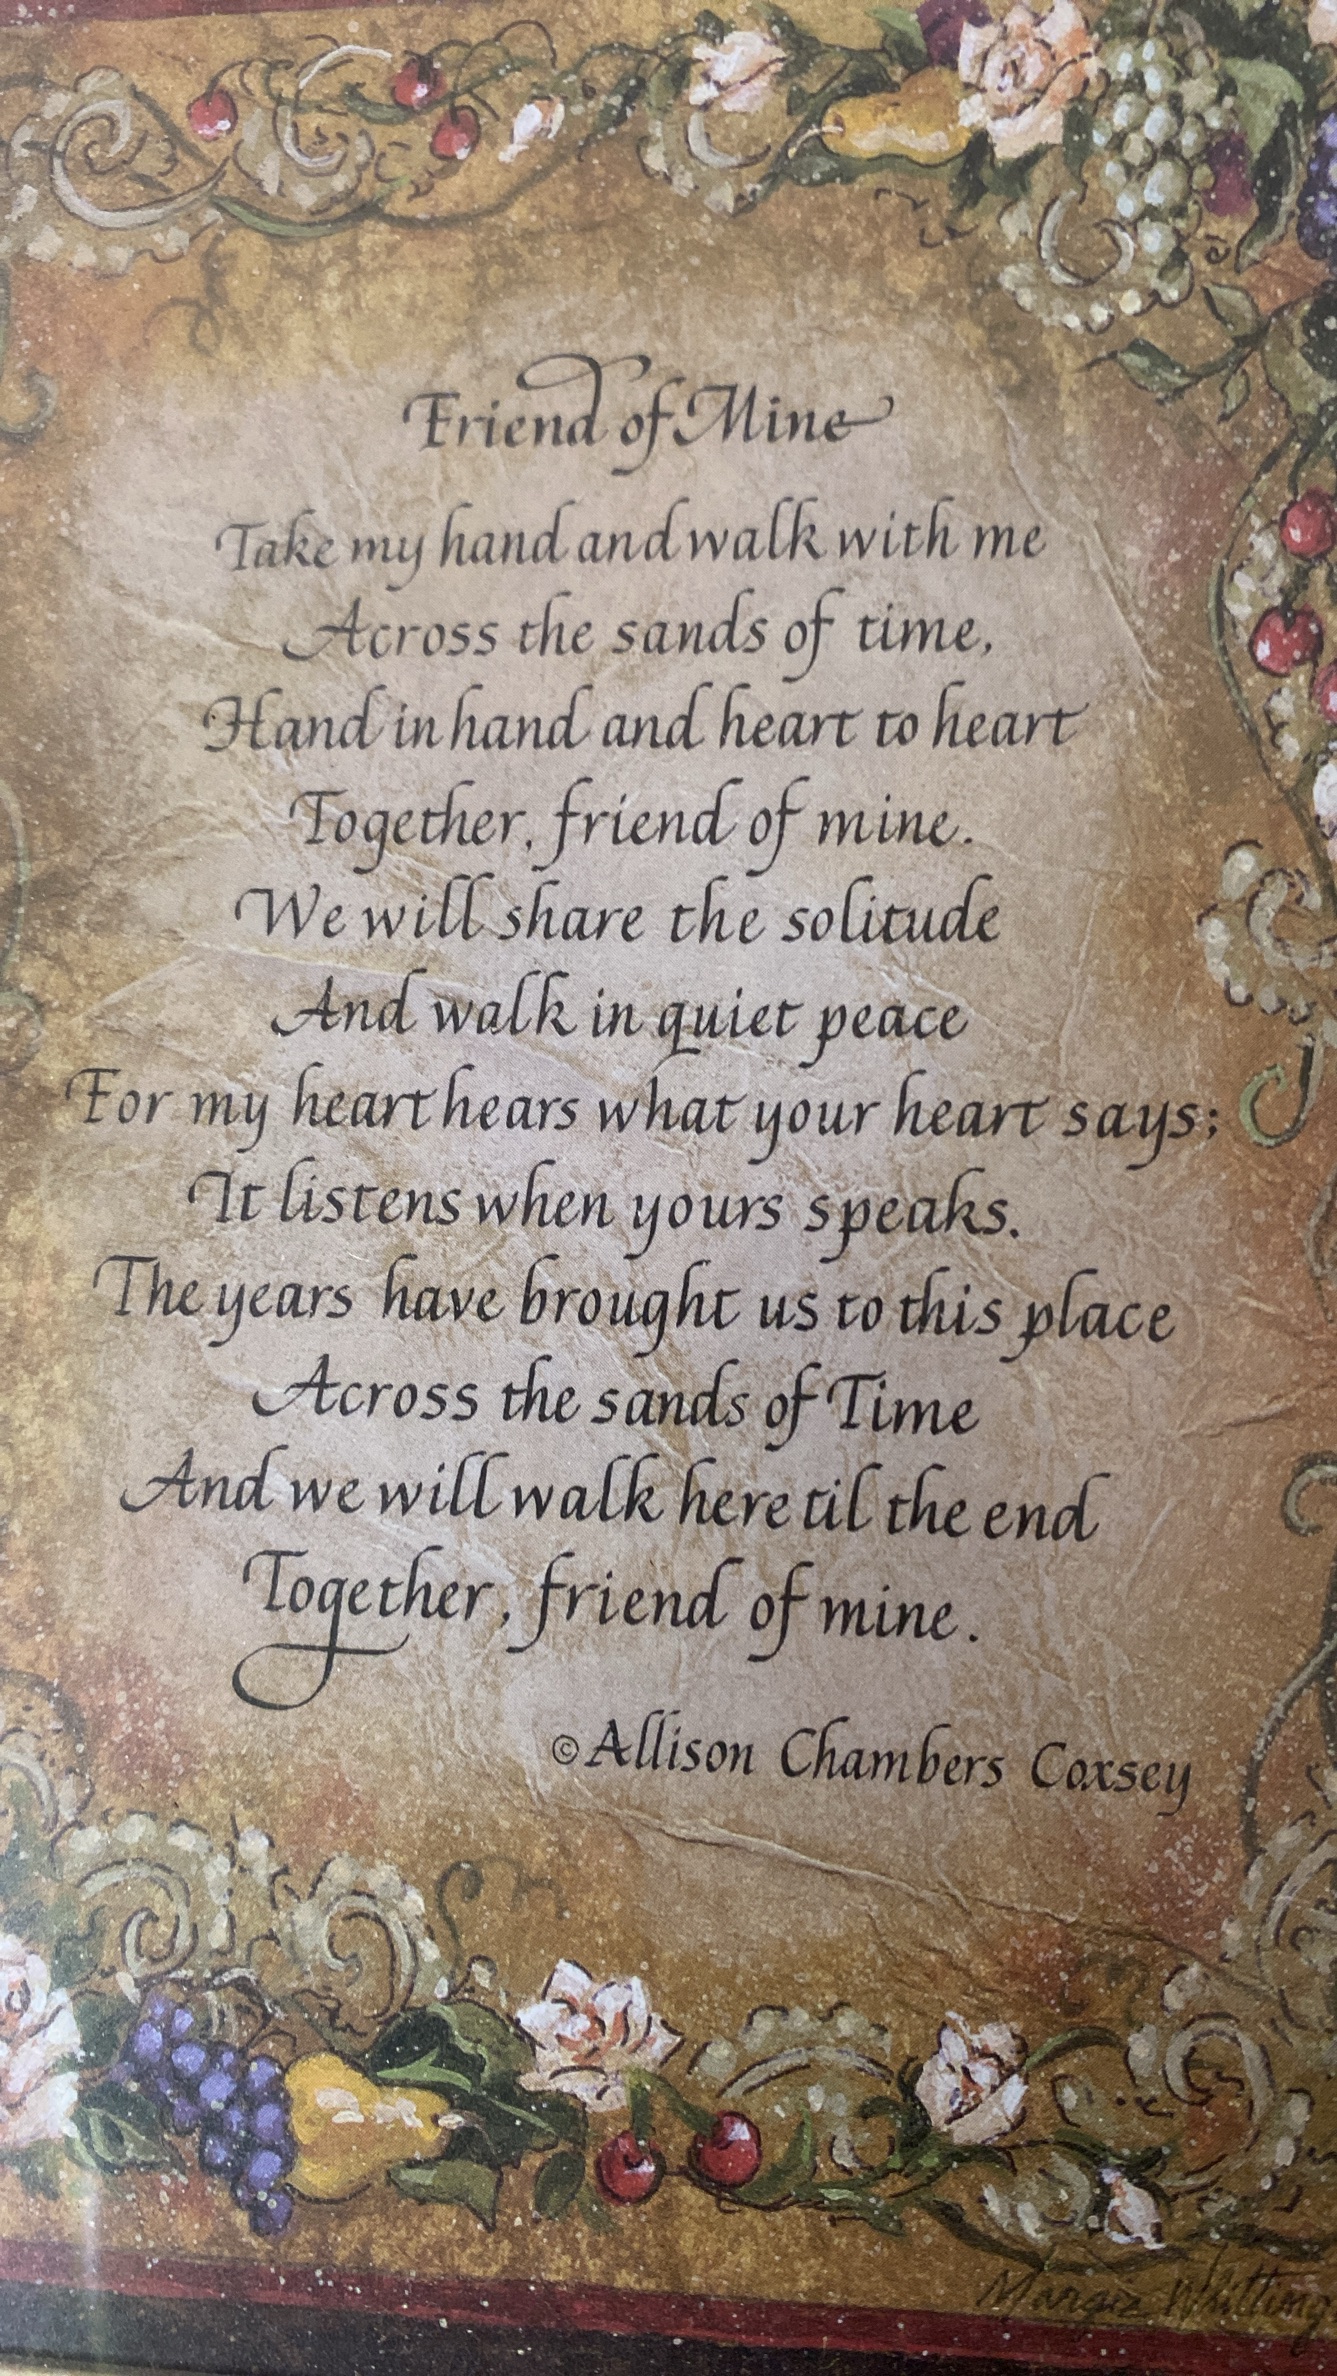 Friend of Mine
Take my hand and walk with me
Across the sands of time,
Hand in hand and heart to heart
Together, friend of mine.
We will share the solitude
And walk in quiet peace
For my heart hears what your heart says;
It listens when yours speaks.
The years have brought us to this place
Across the sands of Time
And we will walk here til the end
Together, friend of mine.
©Allison Chambers Coxsey